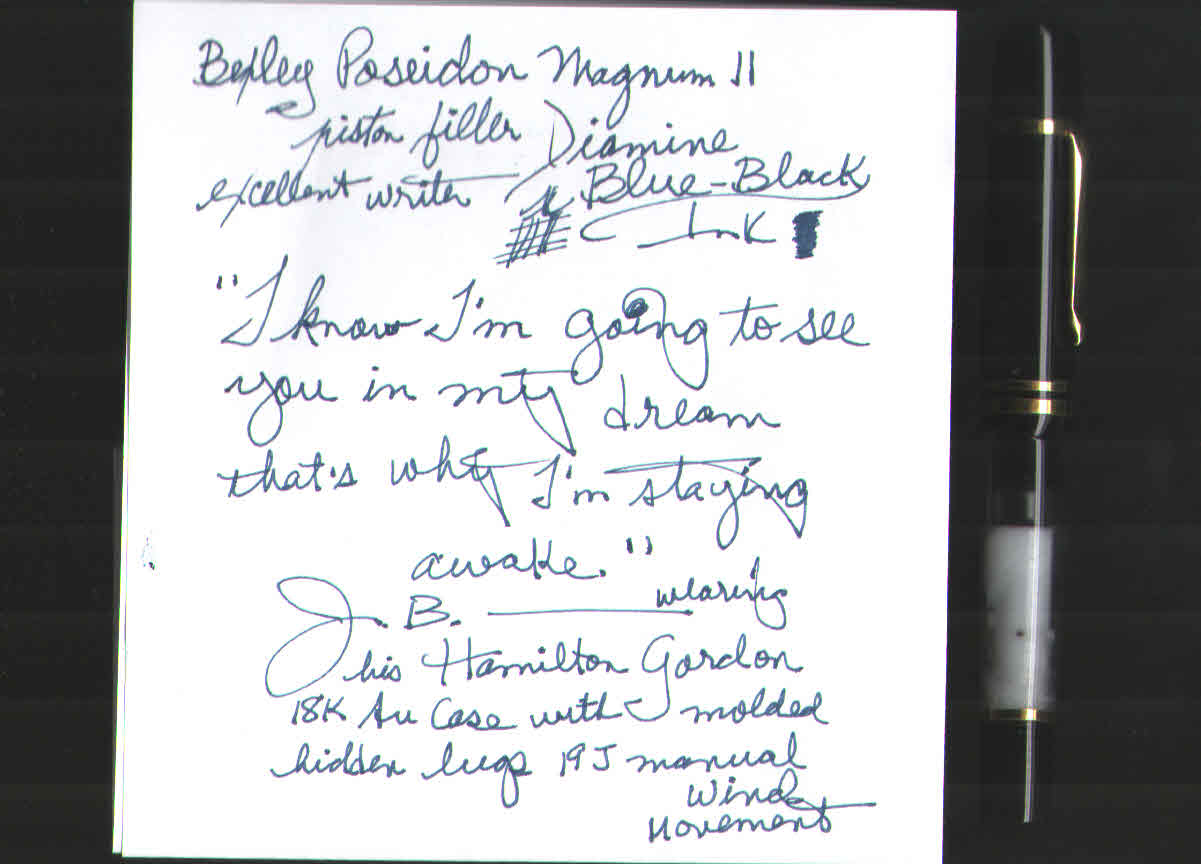 Bexley Poseidon Magnum II
piston filler Diamine
excellent writer Blue-Black
Ink
"I know I'm going to see
you in my dream
that's why I'm staying
awake."
J. B. — wearing
his Hamilton Gordon
18K Au Case with molded
hidden lugs 19J manual
wind
movement